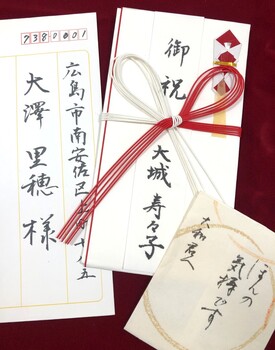 7380001
広島市南安佐区
大澤 里穂 様
御祝
大城 寿々子
大和君へ
ほんの
気持です